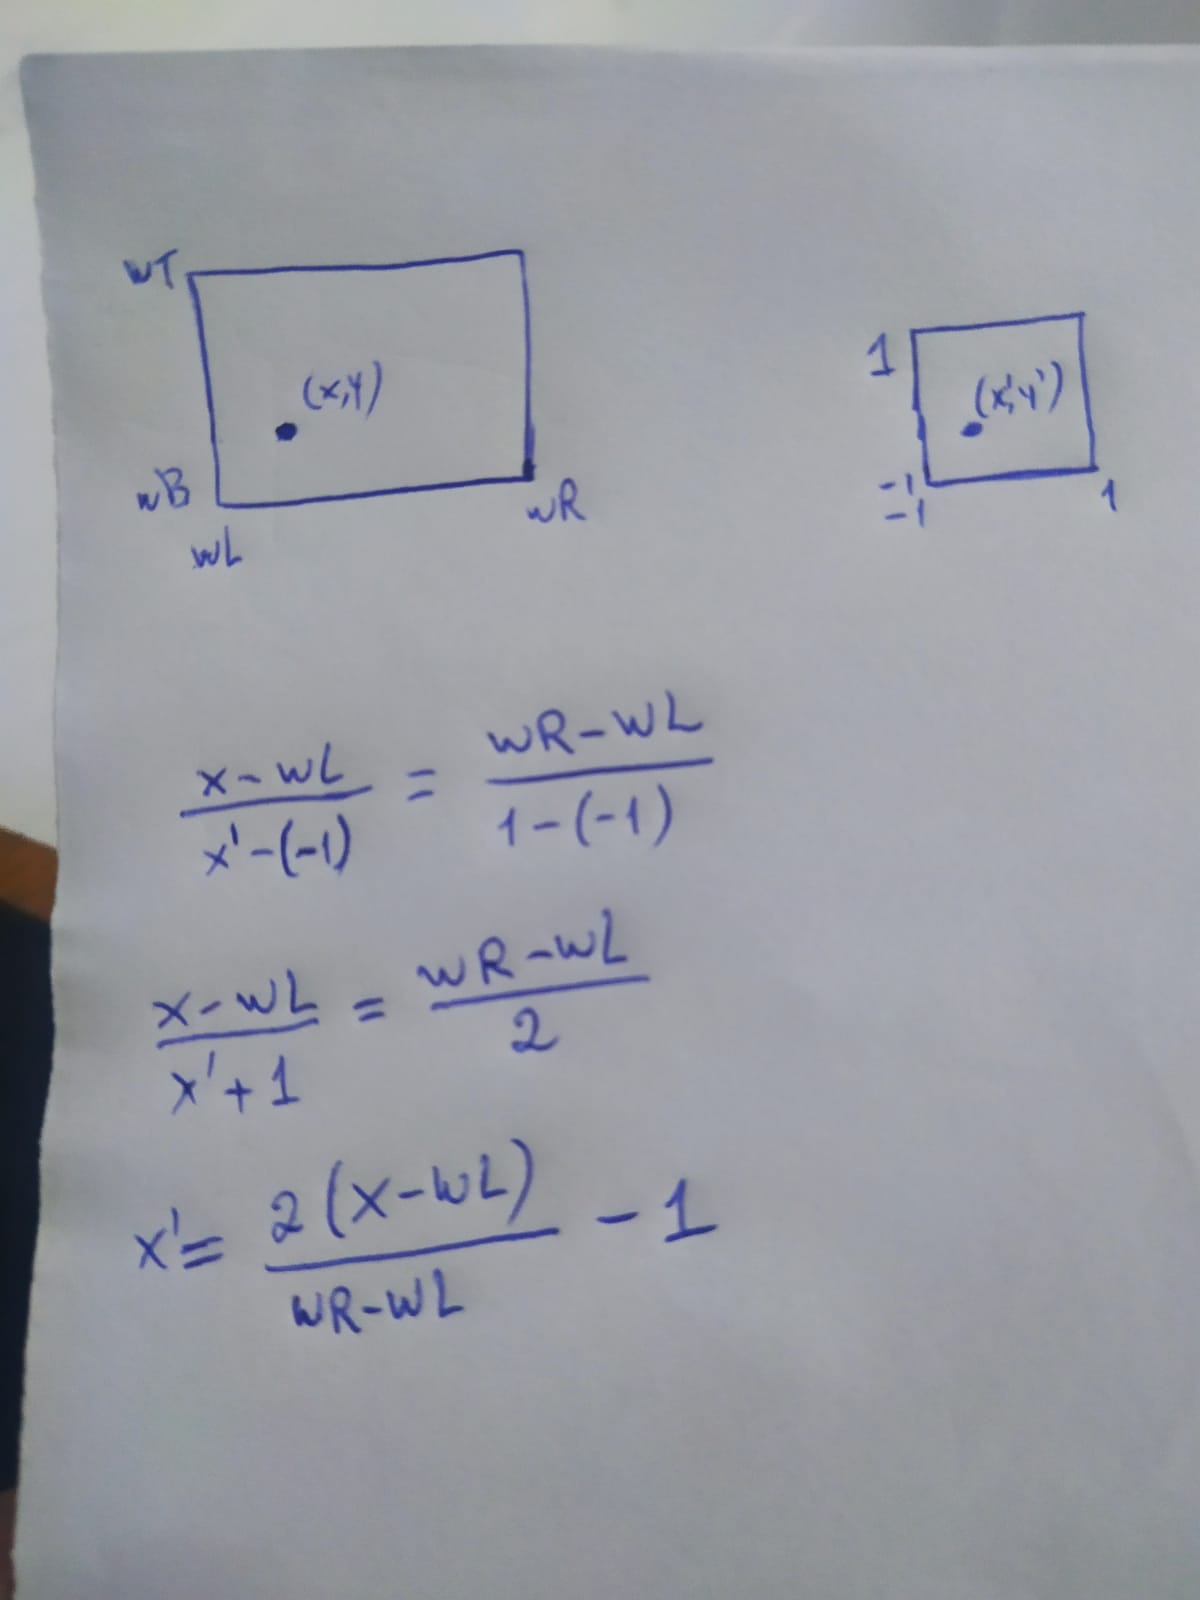 wT
(x,y)
1
(x',y')
wB
wR
wL
-1
-1
1
x-wL / x'-(-1) = wR-wL / 1-(-1)
x-wL / x'+1 = wR-wL / 2
x' = 2(x-wL) / wR-wL - 1